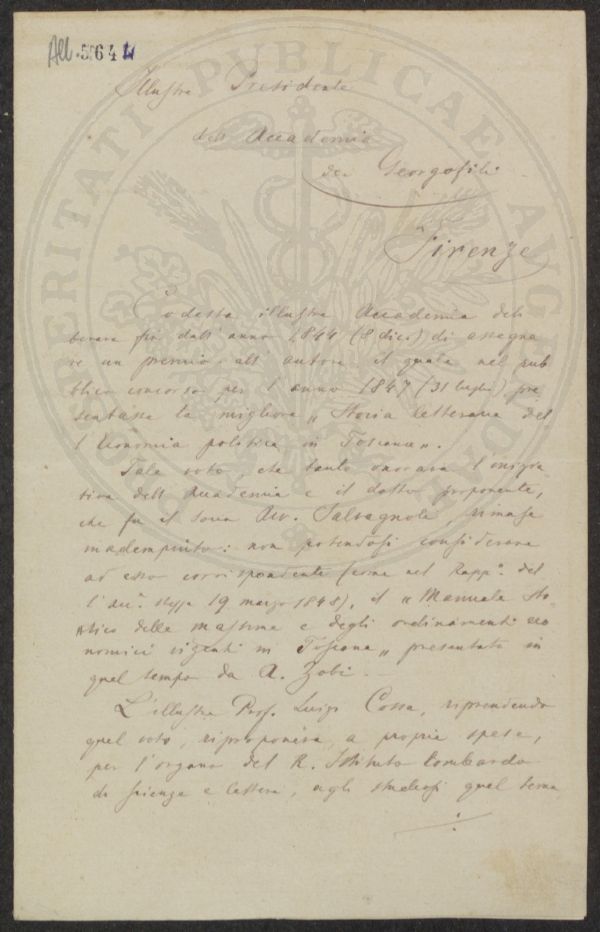 All. 564
Illustre Presidente
dell' Accademia
dei Georgofili
Firenze
Codesta illustre Accademia deli
berava fin dall' anno 1844 (8 dice) di assegna
re un premio all' autore il quale nel pub
blico concorso per l' anno 1847 (31 luglio) pre
sentasse la migliore „ Storia letteraria del
l' Economia politica in Toscana „.
Tale voto, che tanto onorava l' inizia
tiva dell' Accademia e il dotto proponente,
che fu il socio Avv. Salvagnoli, rimase
inadempiuto: non potendosi considerare
ad esso corrispondente (come nel Rapp.º del
l' Acc.ª stessa 19 marzo 1848), il „ Manuale sto
rico delle massime e degli ordinamenti eco
nomici vigenti in Toscana „ presentato in
quel tempo da A. Zobi. —
L' illustre Prof. Luigi Cossa, riprendendo
quel voto, riproponeva, a proprie spese,
per l' organo del R. Istituto lombardo
di scienze e lettere, agli studiosi quel tema
PUBLICAE